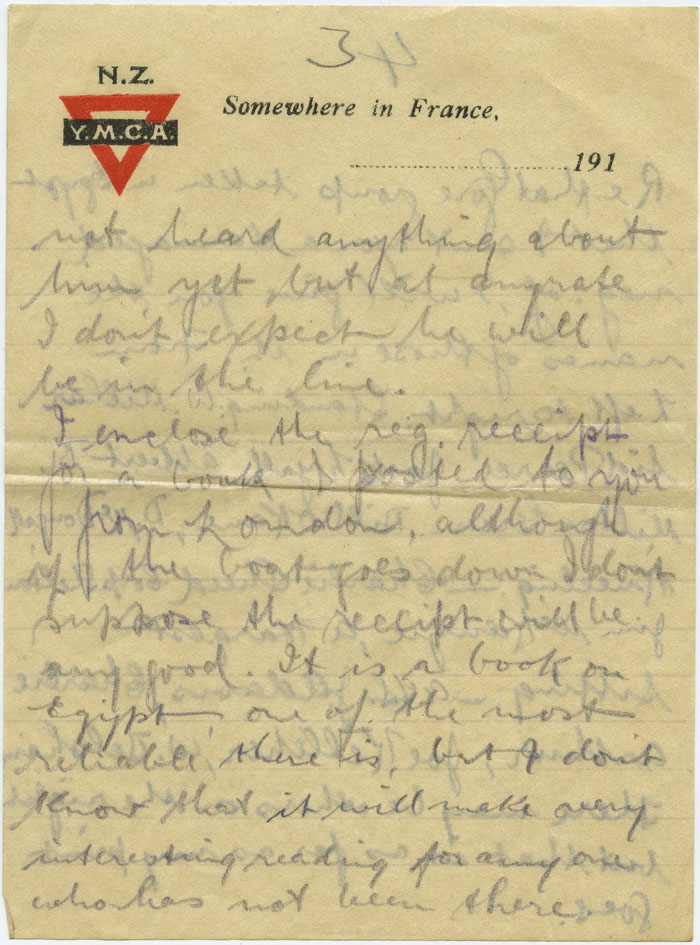 3
N.Z.
Y.M.C.A.
Somewhere in France,
191
not heard anything about
him yet but at anyrate
I don't expect he will
be in the line.
I enclose the reg. receipt
for a book I posted to you
from London, although
if the boat goes down I don't
suppose the receipt will be
any good. It is a book on
Egypt, one of the most
reliable there is, but I don't
know that it will make very
interesting reading for anyone
who has not been there.